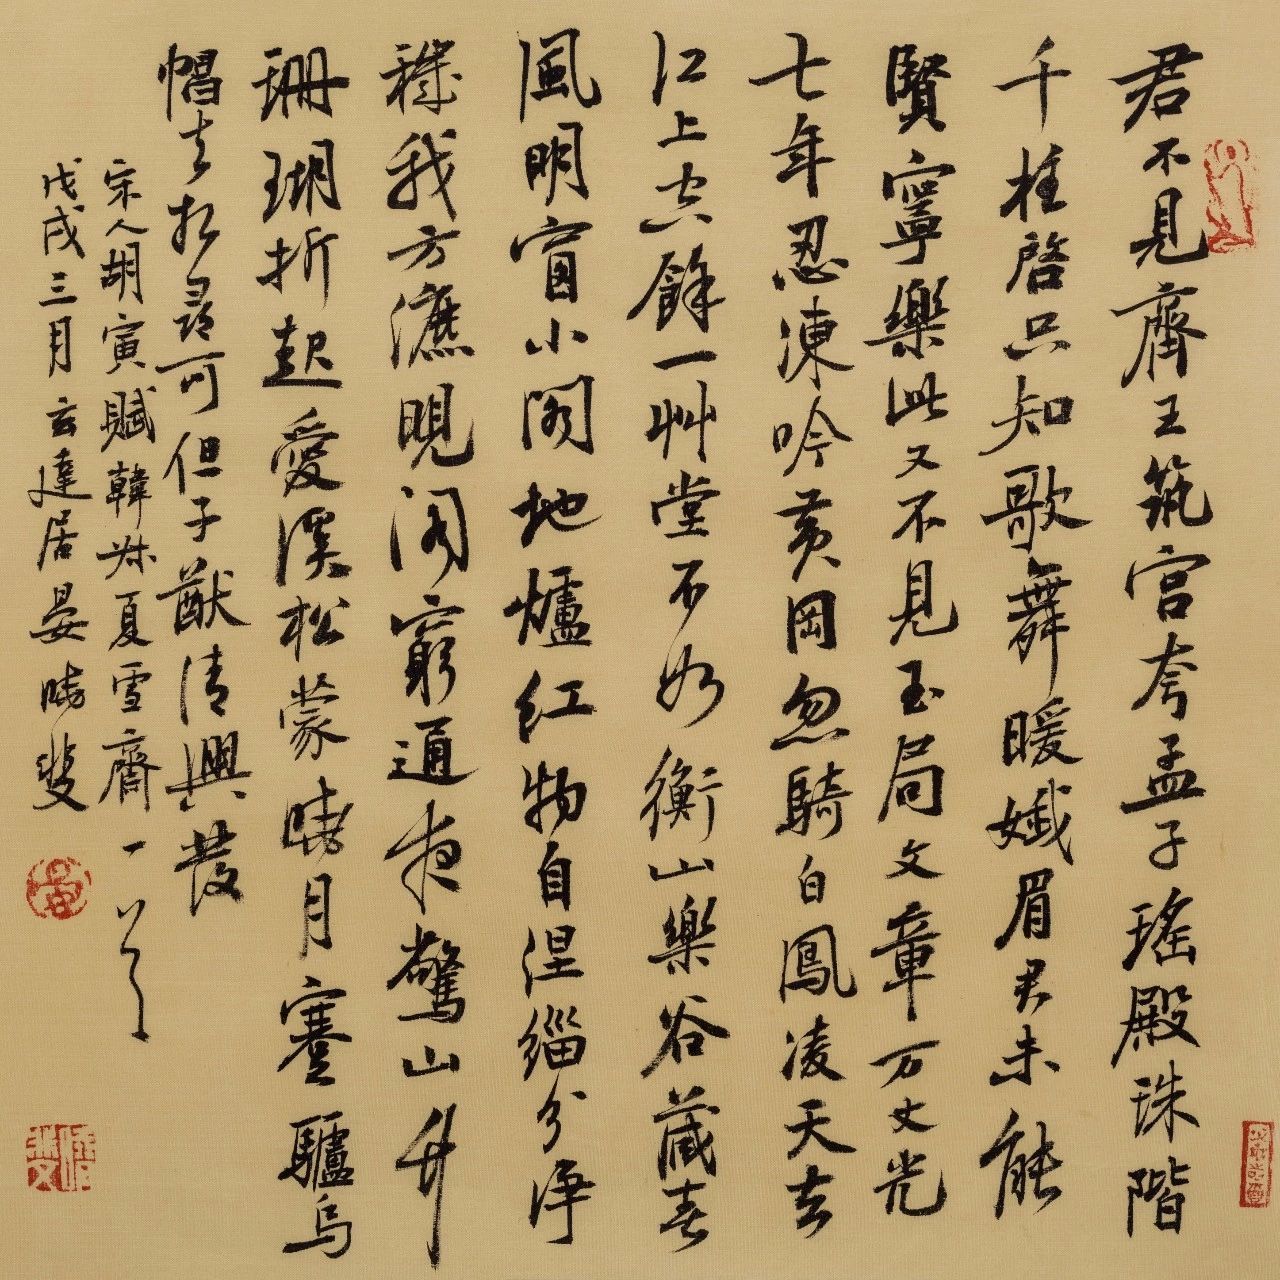 君不見齊王筑宮夸孟子瑤殿珠階
千柱啓只知歌舞暖孅眉君未能
賢寧樂此又不見玉局文章万丈光
七年忍凍吟黃岡忽騎白鳳凌天去
江上空餘一艸堂不如衡山樂谷藏春
風明窗小閣地爐紅物自涅緇分淨
穢我方瀌晛閣窮通夜驚山竹
珊瑚折起愛溪松蒙曉月蹇驢烏
帽去相尋可但子猷清興發
宋人胡寅賦韓叔夏雪齋一首
戊戌三月玄達居晏曉斐